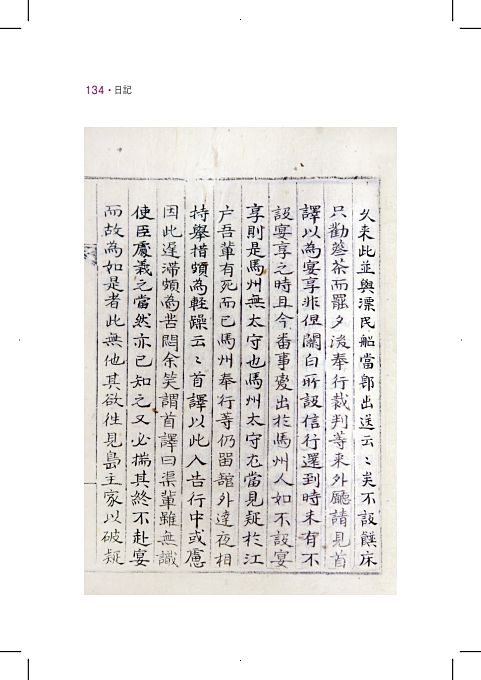 134 · 日記
久來此並與漂民船當卽出送云〻矣不設饌床
只勸蔘茶而罷夕後奉行裁判等來外廳請見首
譯以為宴享非但關白所設信行還到時未有不
設宴享之時且今番事變出於馬州人如不設宴
享則是馬州無太守也馬州太守尤當見疑於江
戶吾輩有死而已馬州奉行等仍留舘外達夜相
持擧措頗為輕躁云〻首譯以此入告行中或慮
因此遲滯頗為苦悶余笑謂首譯曰渠輩雖無識
使臣處義之當然亦已知之又必揣其終不赴宴
而故為如是者此無他其欲徃見島主家以破疑